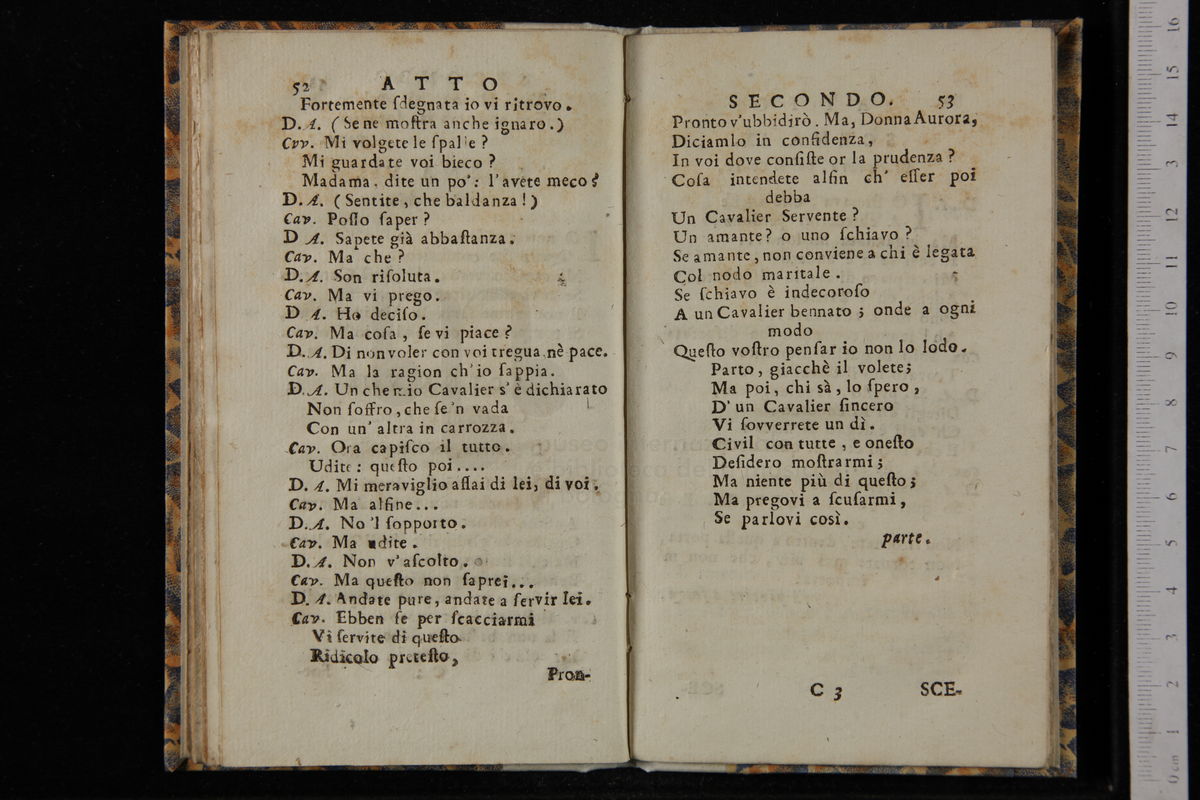 52 ATTO
Fortemente ſdegnata io vi ritrovo.
D. A. (Se ne moſtra anche ignaro.)
Cvv. Mi volgete le ſpalle?
Mi guardate voi bieco?
Madama, dite un po': l'avete meco?
D. A. (Sentite, che baldanza!)
Cav. Poſſo ſaper?
D A. Sapete già abbaſtanza.
Cav. Ma che?
D. A. Son riſoluta.
Cav. Ma vi prego.
D A. Ho deciſo.
Cav. Ma coſa, ſe vi piace?
D. A. Di non voler con voi tregua, nè pace.
Cav. Ma la ragion ch'io ſappia.
D. A. Un che mio Cavalier s'è dichiarato
Non ſoffro, che ſe'n vada
Con un' altra in carrozza.
Cav. Ora capiſco il tutto.
Udite: queſto poi....
D. A. Mi meraviglio aſſai di lei, di voi.
Cav. Ma alfine...
D. A. No 'l ſopporto.
Cav. Ma udite.
D. A. Non v'aſcolto.
Cav. Ma queſto non ſaprei...
D. A. Andate pure, andate a ſervir lei.
Cav. Ebben ſe per ſcacciarmi
Vi ſervite di queſto
Ridicolo preteſto,
Pron-
SECONDO. 53
Pronto v'ubbidirò. Ma, Donna Aurora,
Diciamlo in confidenza,
In voi dove conſiſte or la prudenza?
Coſa intendete alfin ch' eſſer poi
debba
Un Cavalier Servente?
Un amante? o uno ſchiavo?
Se amante, non conviene a chi è legata
Col nodo maritale.
Se ſchiavo è indecoroſo
A un Cavalier bennato; onde a ogni
modo
Queſto voſtro penſar io non lo lodo.
Parto, giacchè il volete;
Ma poi, chi sà, lo ſpero,
D' un Cavalier ſincero
Vi ſovverrete un dì.
Civil con tutte, e oneſto
Deſidero moſtrarmi;
Ma niente più di queſto;
Ma pregovi a ſcuſarmi,
Se parlovi così.
parte.
C 3 SCE-
0 cm 1 2 3 4 5 6 7 8 9 10 11 12 13 14 15 16